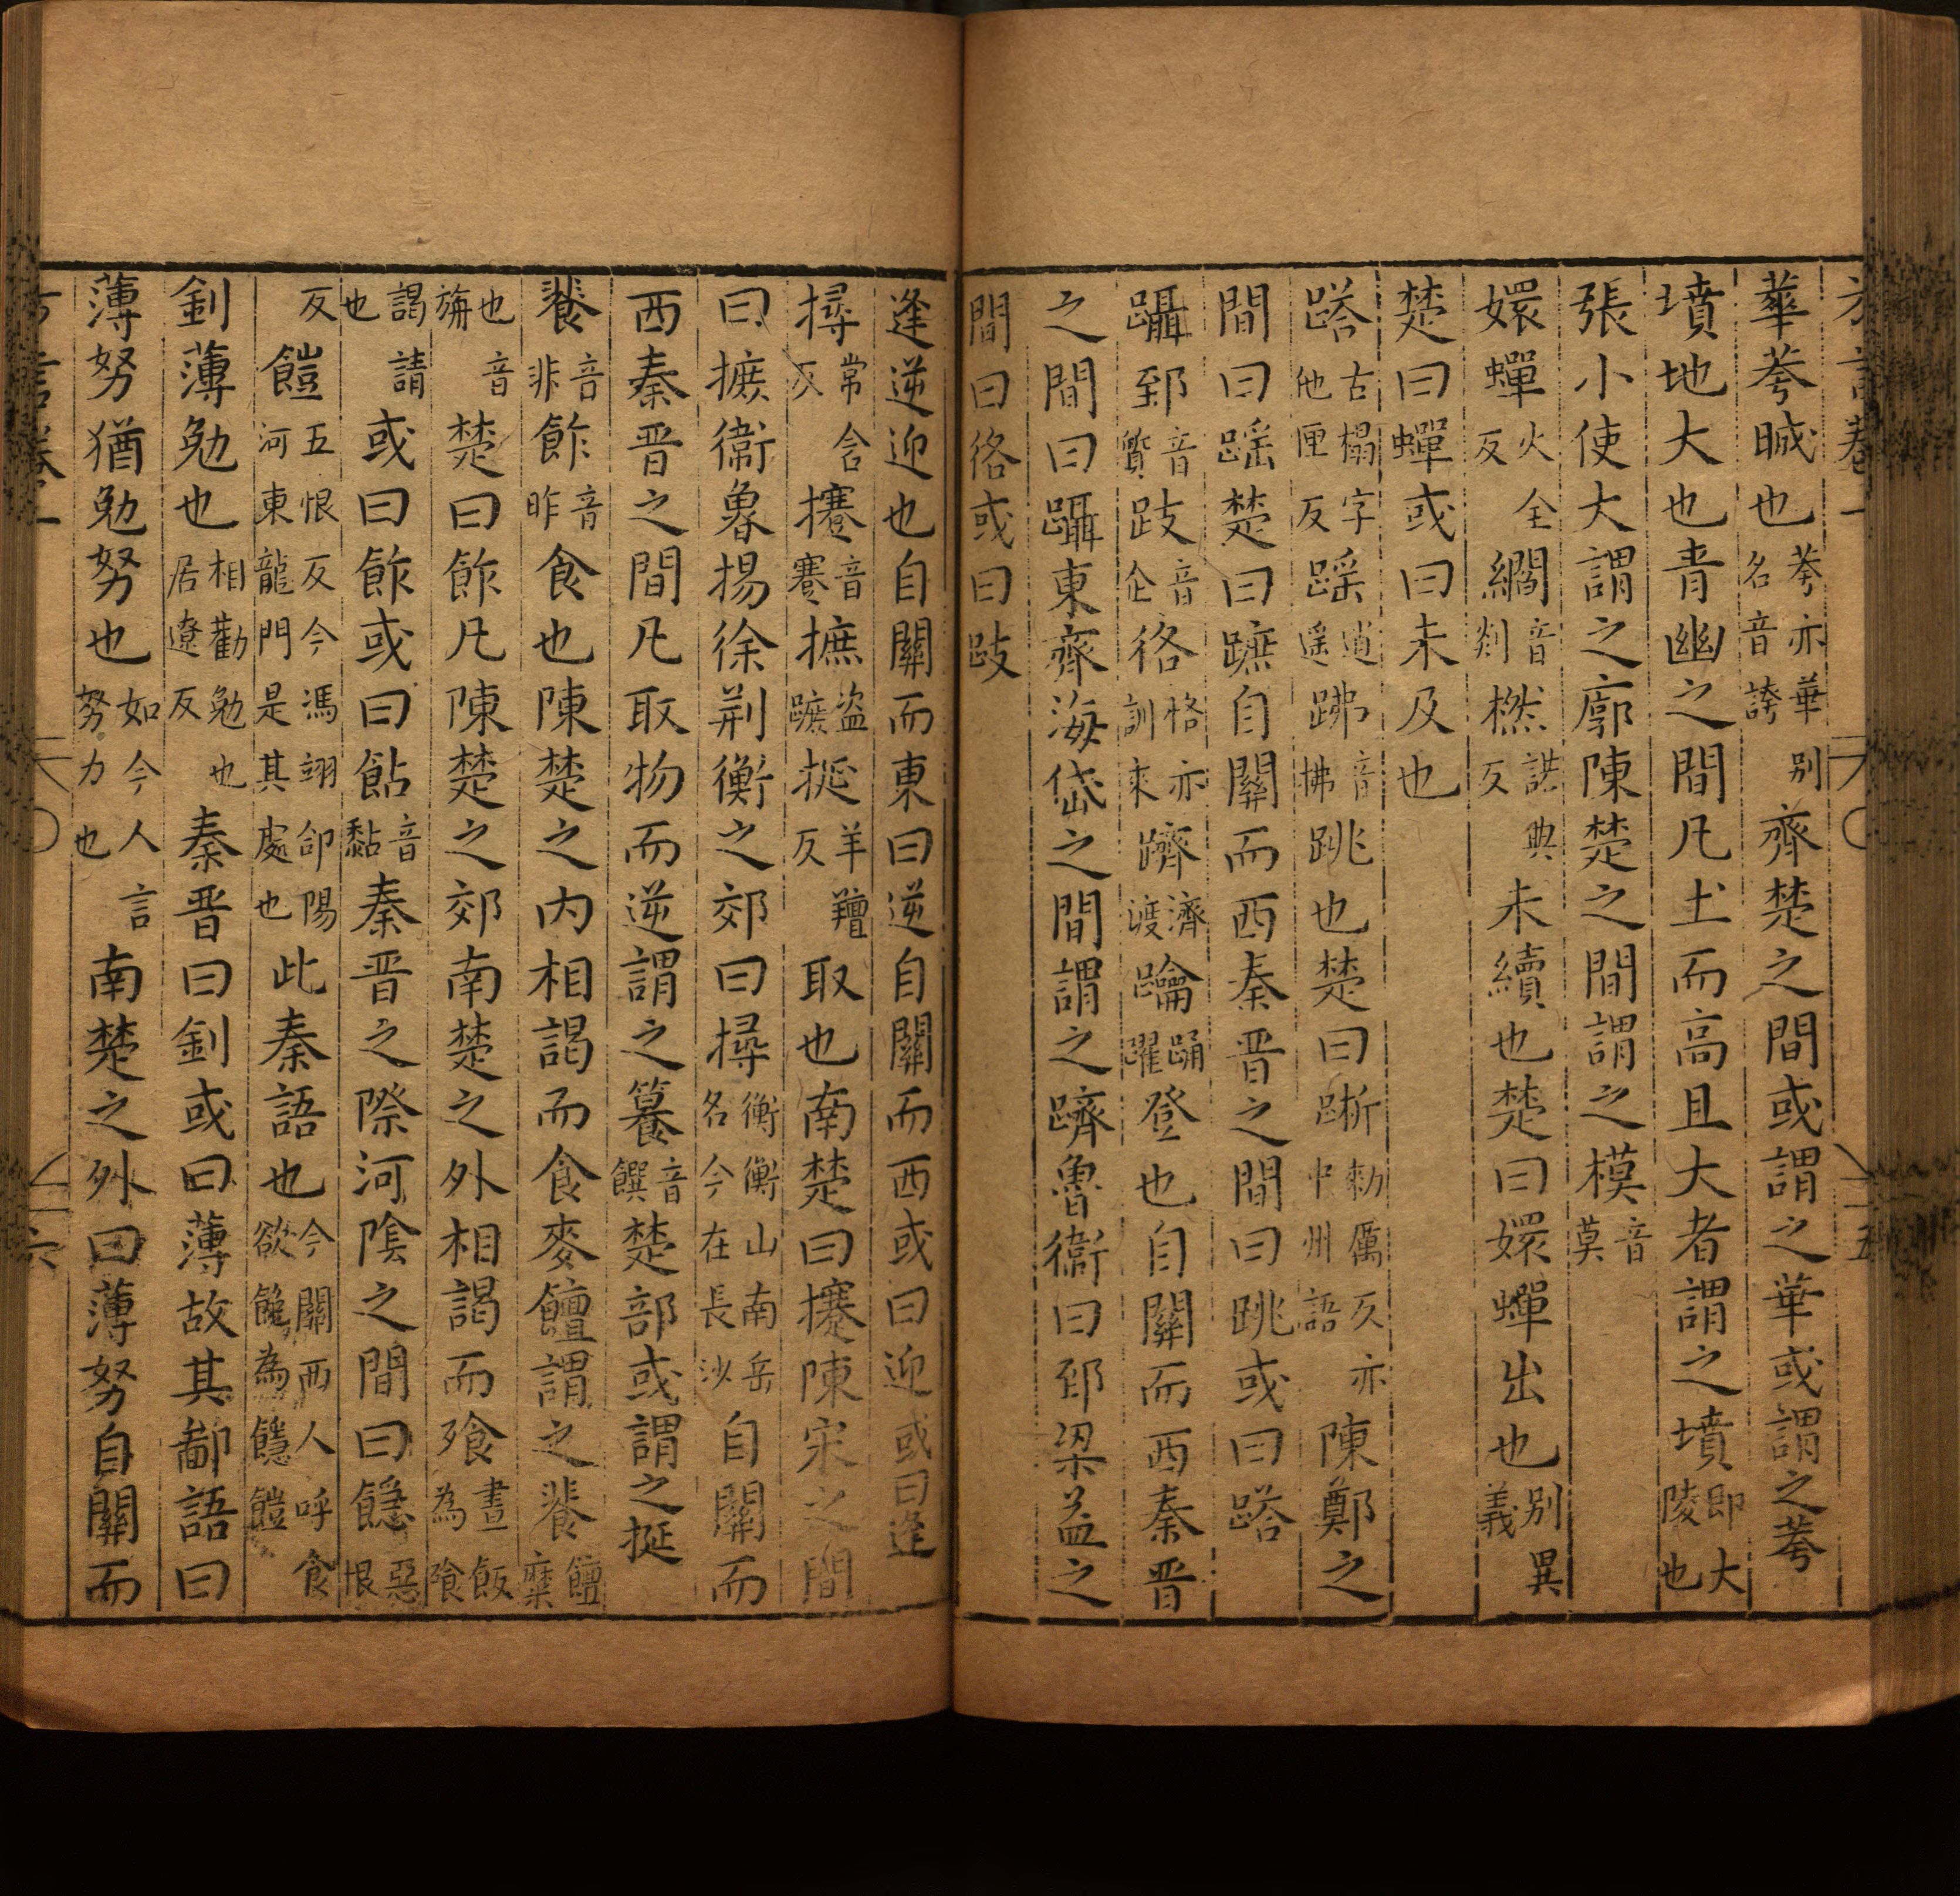 方言卷一
五
華荂晠也荂亦華別名音誇齊楚之間或謂之華或謂之荂
墳地大也青幽之間凡土而高且大者謂之墳即大陵也
張小使大謂之廓陳楚之間謂之摸音莫
嬛蟬火全反繝音剡撚諾典反未續也楚曰嬛蟬出也別異義
楚曰蟬或曰未及也
踏古榻字他匣反䠛逍遥跰音拂跳也楚曰䟐勑厲反亦中州語陳鄭之
間曰䠛楚曰蹠自關而西秦晉之間曰跳或曰踏
躡郅音質跂音企徦恪亦訓來躋濟渡踚踊躍登也自關而西秦晉
之間曰躡東齊海岱之間謂之躋魯衛曰郅梁益之
間曰徦或曰跂
逢逆迎也自關而東曰逆自關而西或曰迎或曰逢
撏常含反攓音蹇摭盜蹠挻羊羶反取也南楚曰攓陳宋之間
曰摭衞魯揚徐荆衡之郊曰撏衡衡山南岳名今在長沙自關而
西秦晉之間凡取物而逆謂之篹音饌楚部或謂之挻
餥音非飵音昨食也陳楚之内相謁而食麥饘謂之餥饘糜
也音旃楚曰飵凡陳楚之郊南楚之外相謁而飱晝飯為飱
謁請也或曰飵或曰䬯音黏秦晉之際河陰之間曰䭡惡恨
反䭓五恨反今馮翊郃陽河東龍門是其處也此秦語也今關西人呼食欲飽為䭡䭓
釗薄勉也相勸勉也居遼反秦晉曰釗或曰薄故其鄙語曰
薄努猶勉努也如今人言努力也南楚之外曰薄努自關而
方言卷一
六